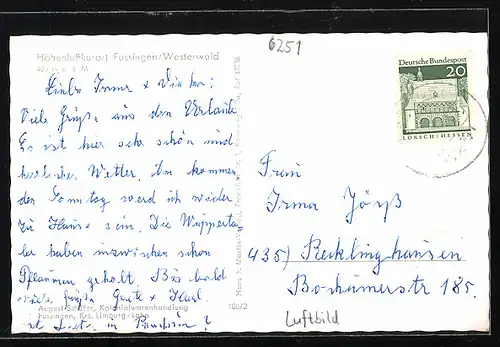 Höhenluftkurort Fussingen/Westerwald
6251
Liebe Irma &
Viele Grüße aus dem Urlaub
Es ist hier sehr schön und
herrliches Wetter. Am kommen
den Sonntag werd ich wieder
zu Hause sein. Die Wupperta
ler haben inzwischen schon
Pflaumen geholt. Bis bald
viele Grüße Grete & Karl.
August Schäfer, Kolonialwarenhandlung
Fussingen, Krs. Limburg/Lahn
ist in
10072
Deutsche Bundespost
20
LORSCH/HESSEN
Frau
Irma Jörß
435) Recklinghausen
Bochumerstr 185.
Luftbild